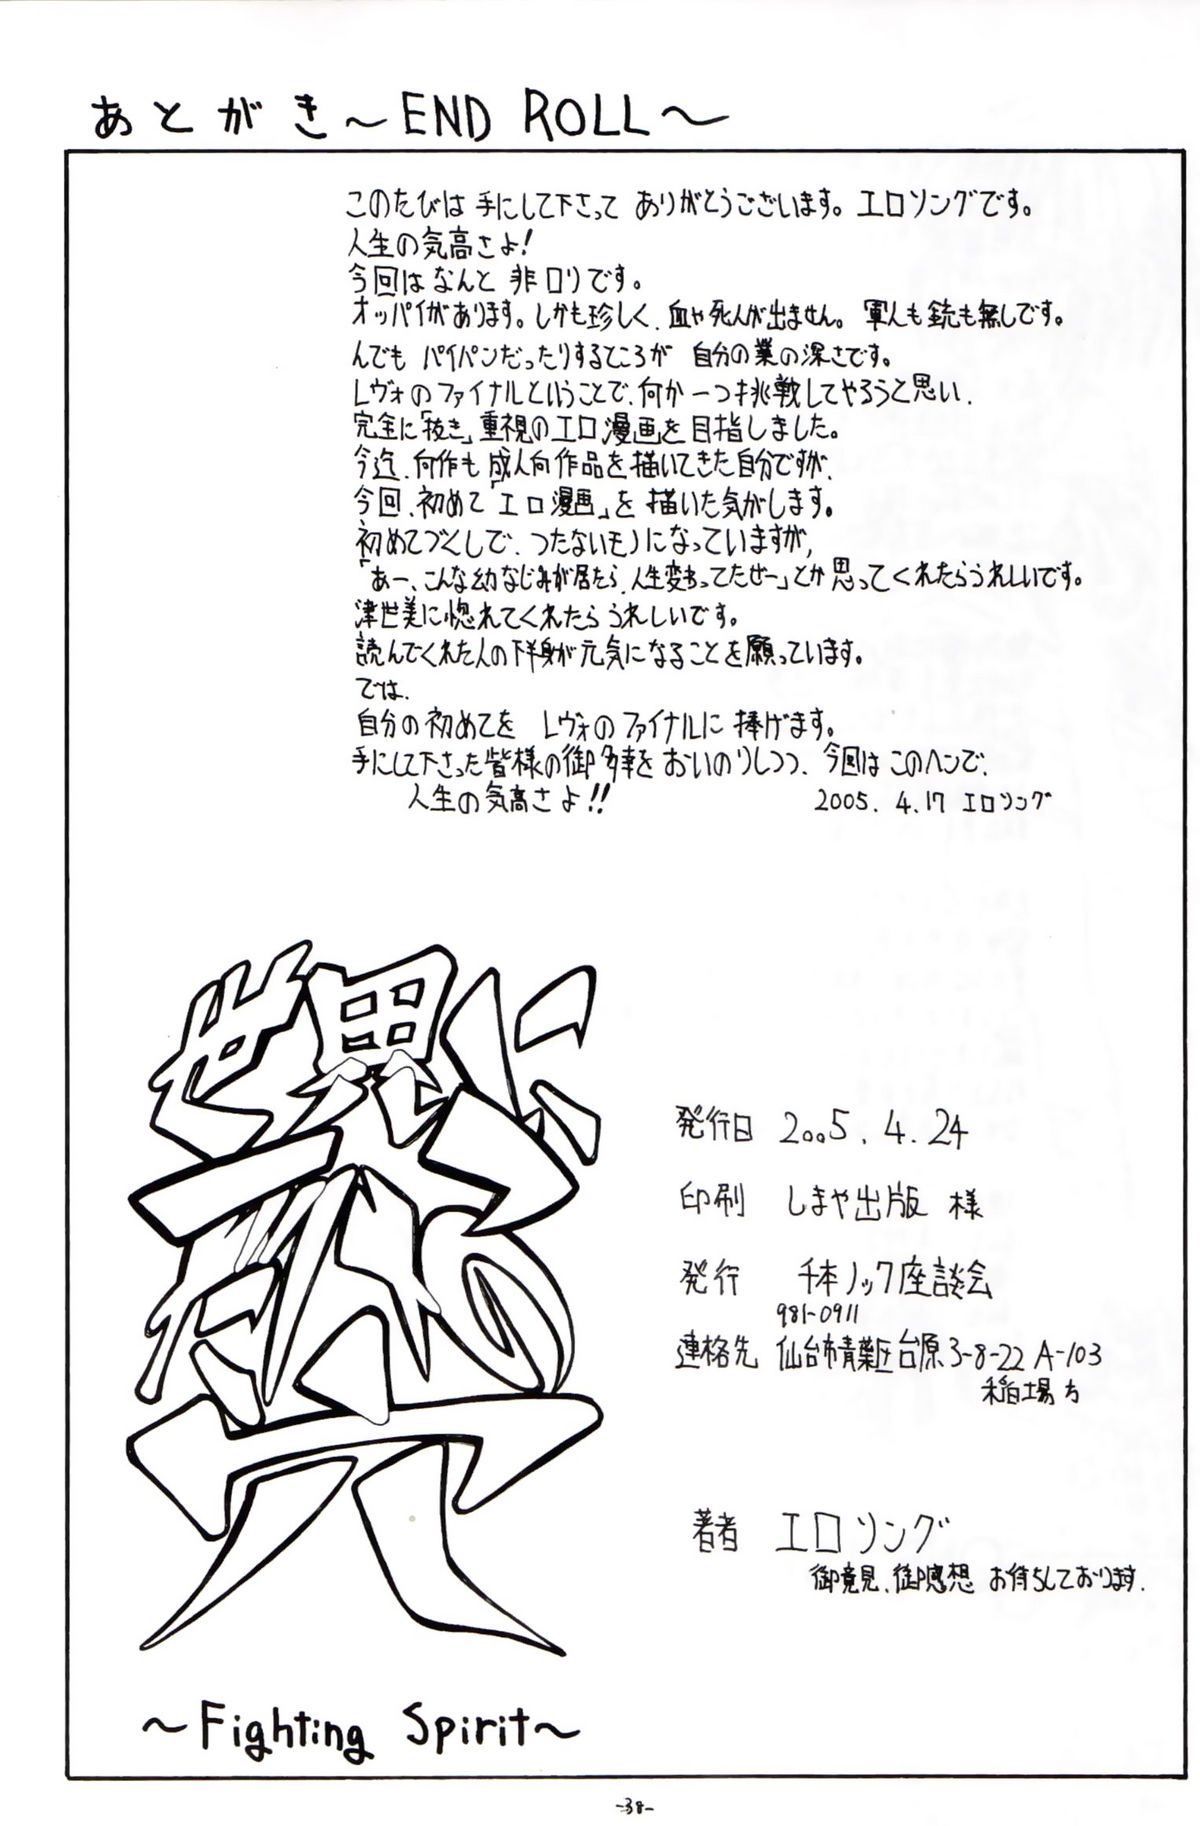 あとがき～END ROLL～
このたびは手にして下さって ありがとうございます。エロソングです。
人生の気高さよ!
今回はなんと 非ロリです。
オッパイがあります。しかも珍しく、血や死人が出ません。軍人も銃も無しです。
んでも パイパンだったりするところが 自分の業の深さです。
レヴォのファイナルということで、何か一つ挑戦してやろうと思い、
完全に「抜き」重視のエロ漫画を目指しました。
今迄、何作も成人向作品を描いてきた自分ですが、
今回、初めて「エロ漫画」を描いた気がします。
初めてづくしで、つたないモノになっていますが、
「あー、こんな幼なじみが居たら、人生変わってたぜー」とか思ってくれたらうれしいです。
津世美に惚れてくれたらうれしいです。
読んでくれた人の下半身が元気になることを願っています。
では、
自分の初めてを レヴォのファイナルに捧げます。
手にして下さった皆様の御多幸をおいのりしつつ、今回はこのヘンで、
人生の気高さよ!!
2005.4.17 エロソング
世界に
一つ
だけの
穴
～Fighting Spirit～
発行日 2005.4.24
印刷 しまや出版 様
発行 千本ノック座談会
981-0911
連絡先 仙台市青葉区台原3-8-22 A-103
稲場方
著者 エロソング
御意見、御感想 お待ちしております.
-38-